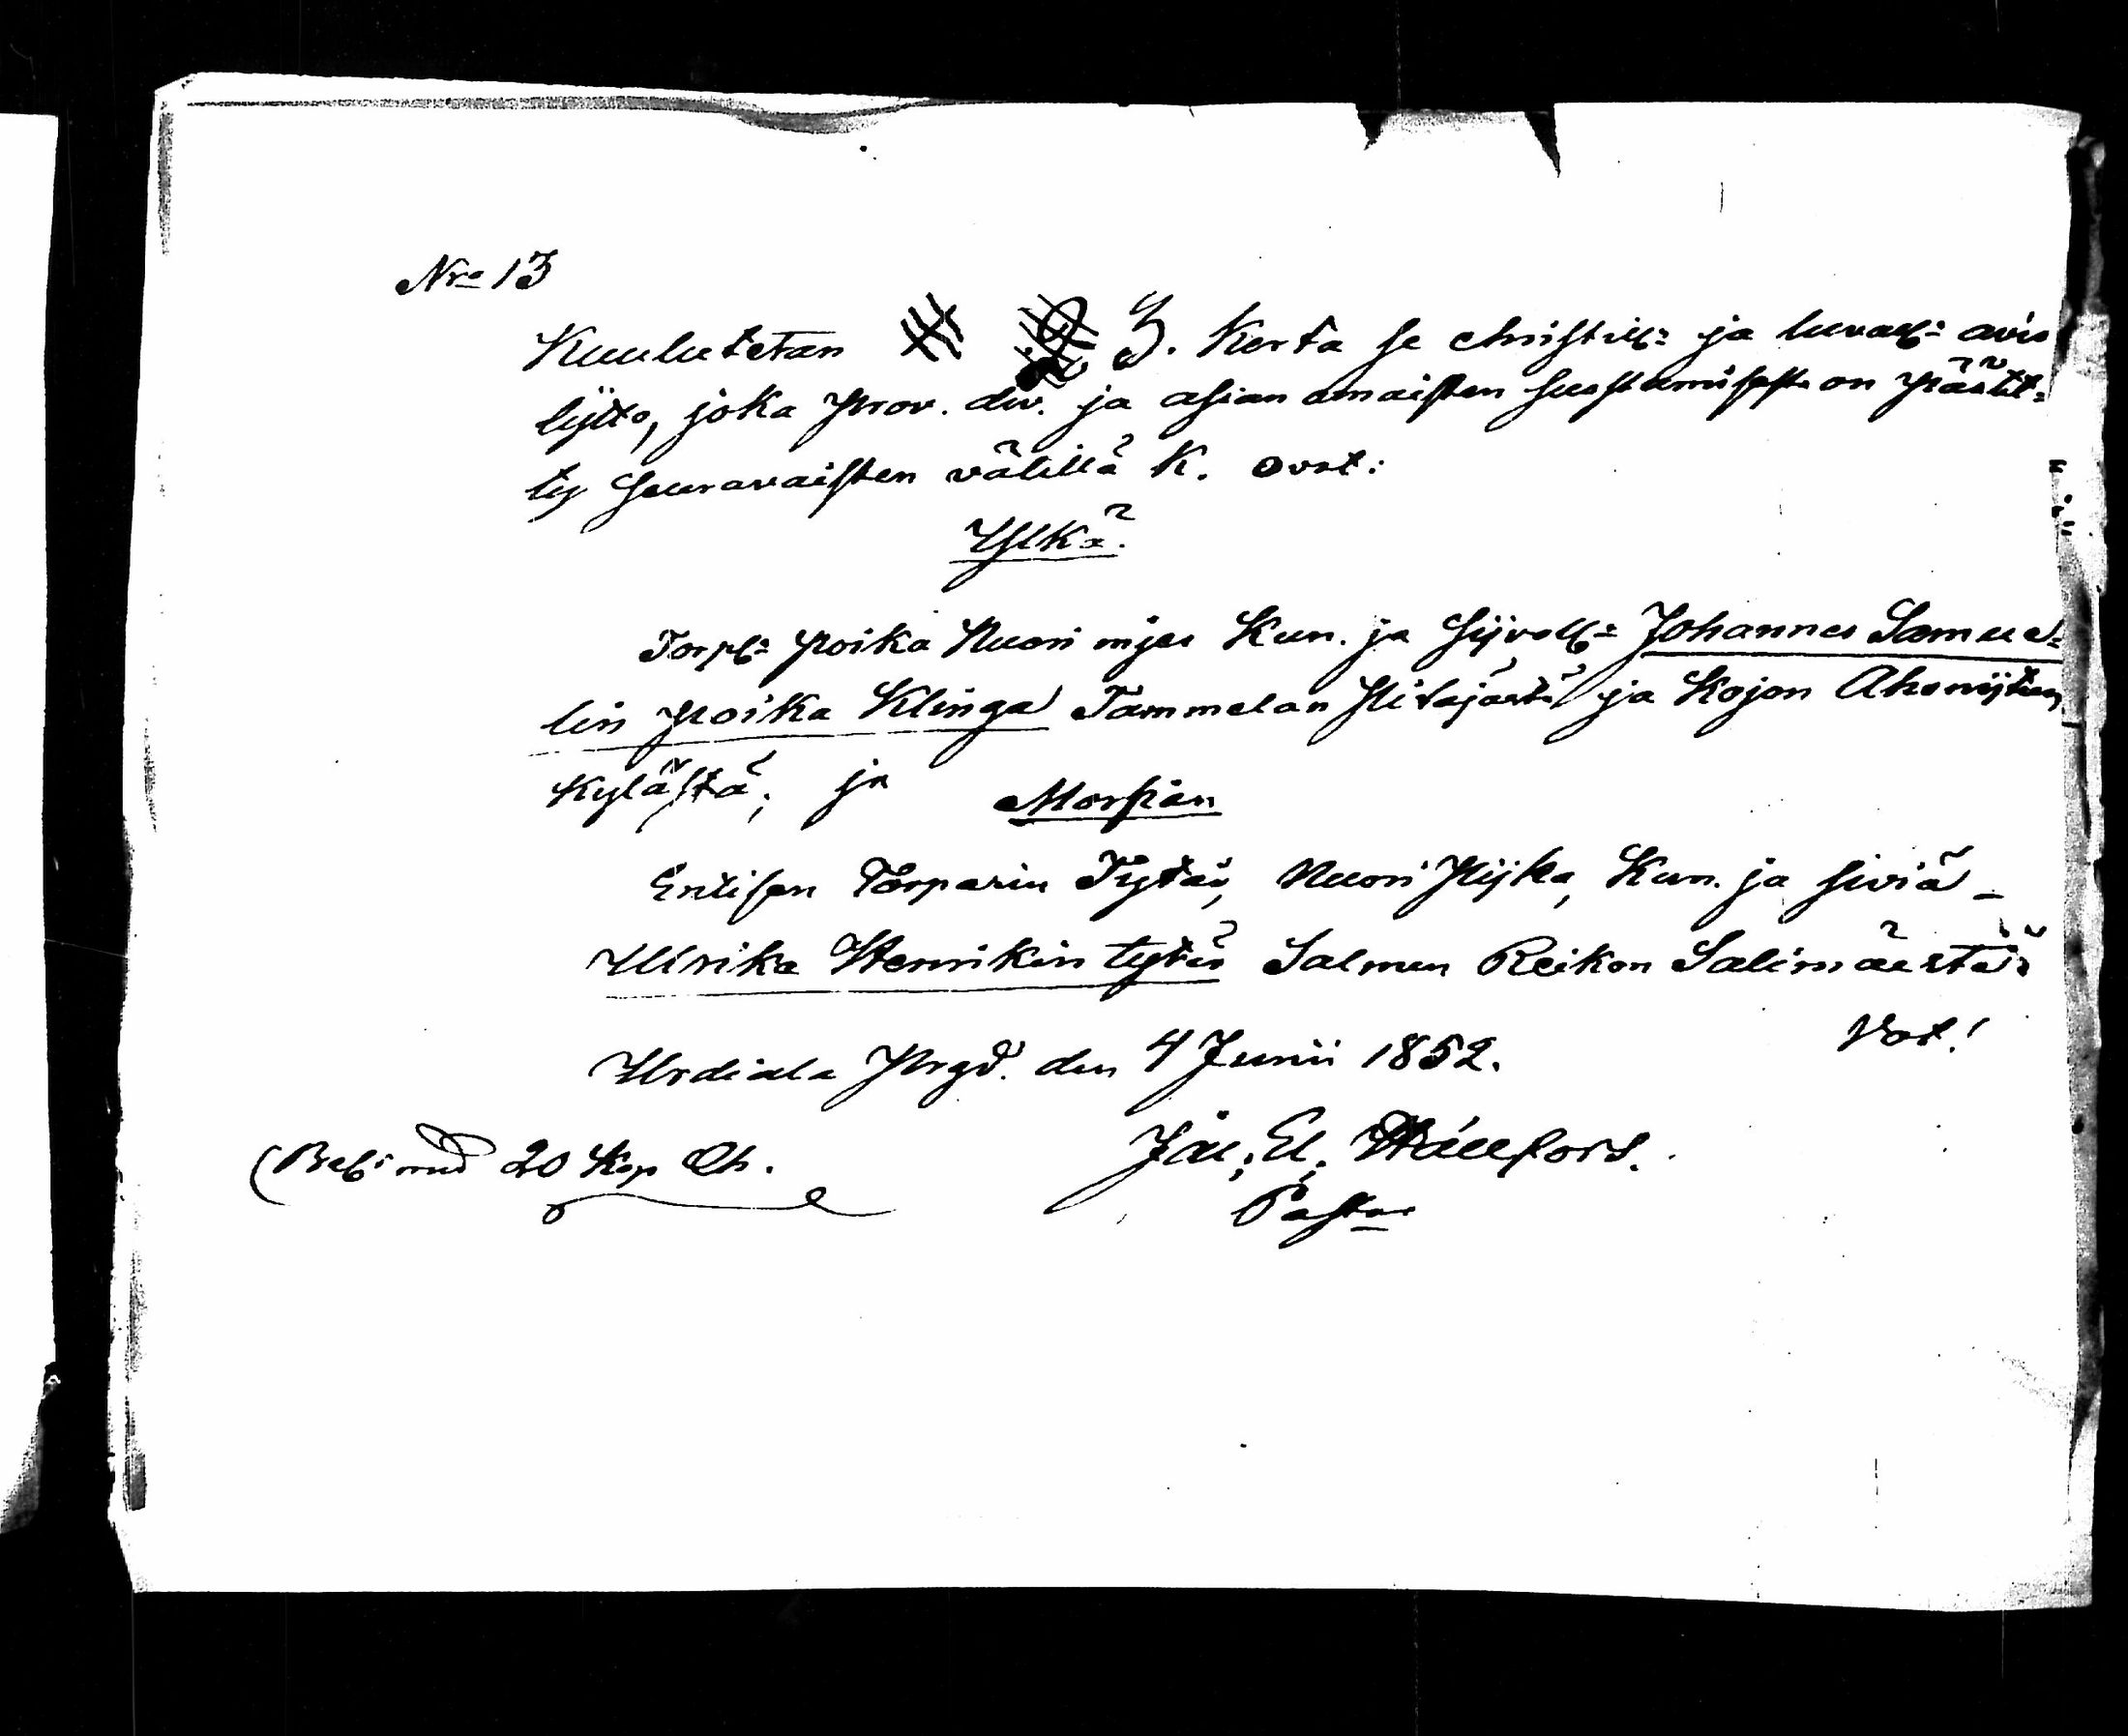 Nro 13
Kuulutetan 3. Kerta se christill: ja luvall: avio
lijtto, joka prov. div. ja asian amaisten suostumisesta on päätet=
ty seuravaisten välillä K. ovat:
Ylkä.
Torp: poika Nuori mjes Kun. ja Sijvoll: Johannes Samue=
lin poika Klinga Tammelan Pitäjästä ja Kojon Ahonijtun
Kylästä; ja
Morsian
Entisen Torparin Tytär, Nuori Pijka, Kun. ja siviä
Ulrika Henrikin tytär Salmen Reikon Salimäestä
Vot!
Urdiala Prgd. den 4 Junii 1852.
(Bet: med 20 Kop Sh. El; Hällfors.
Pastor